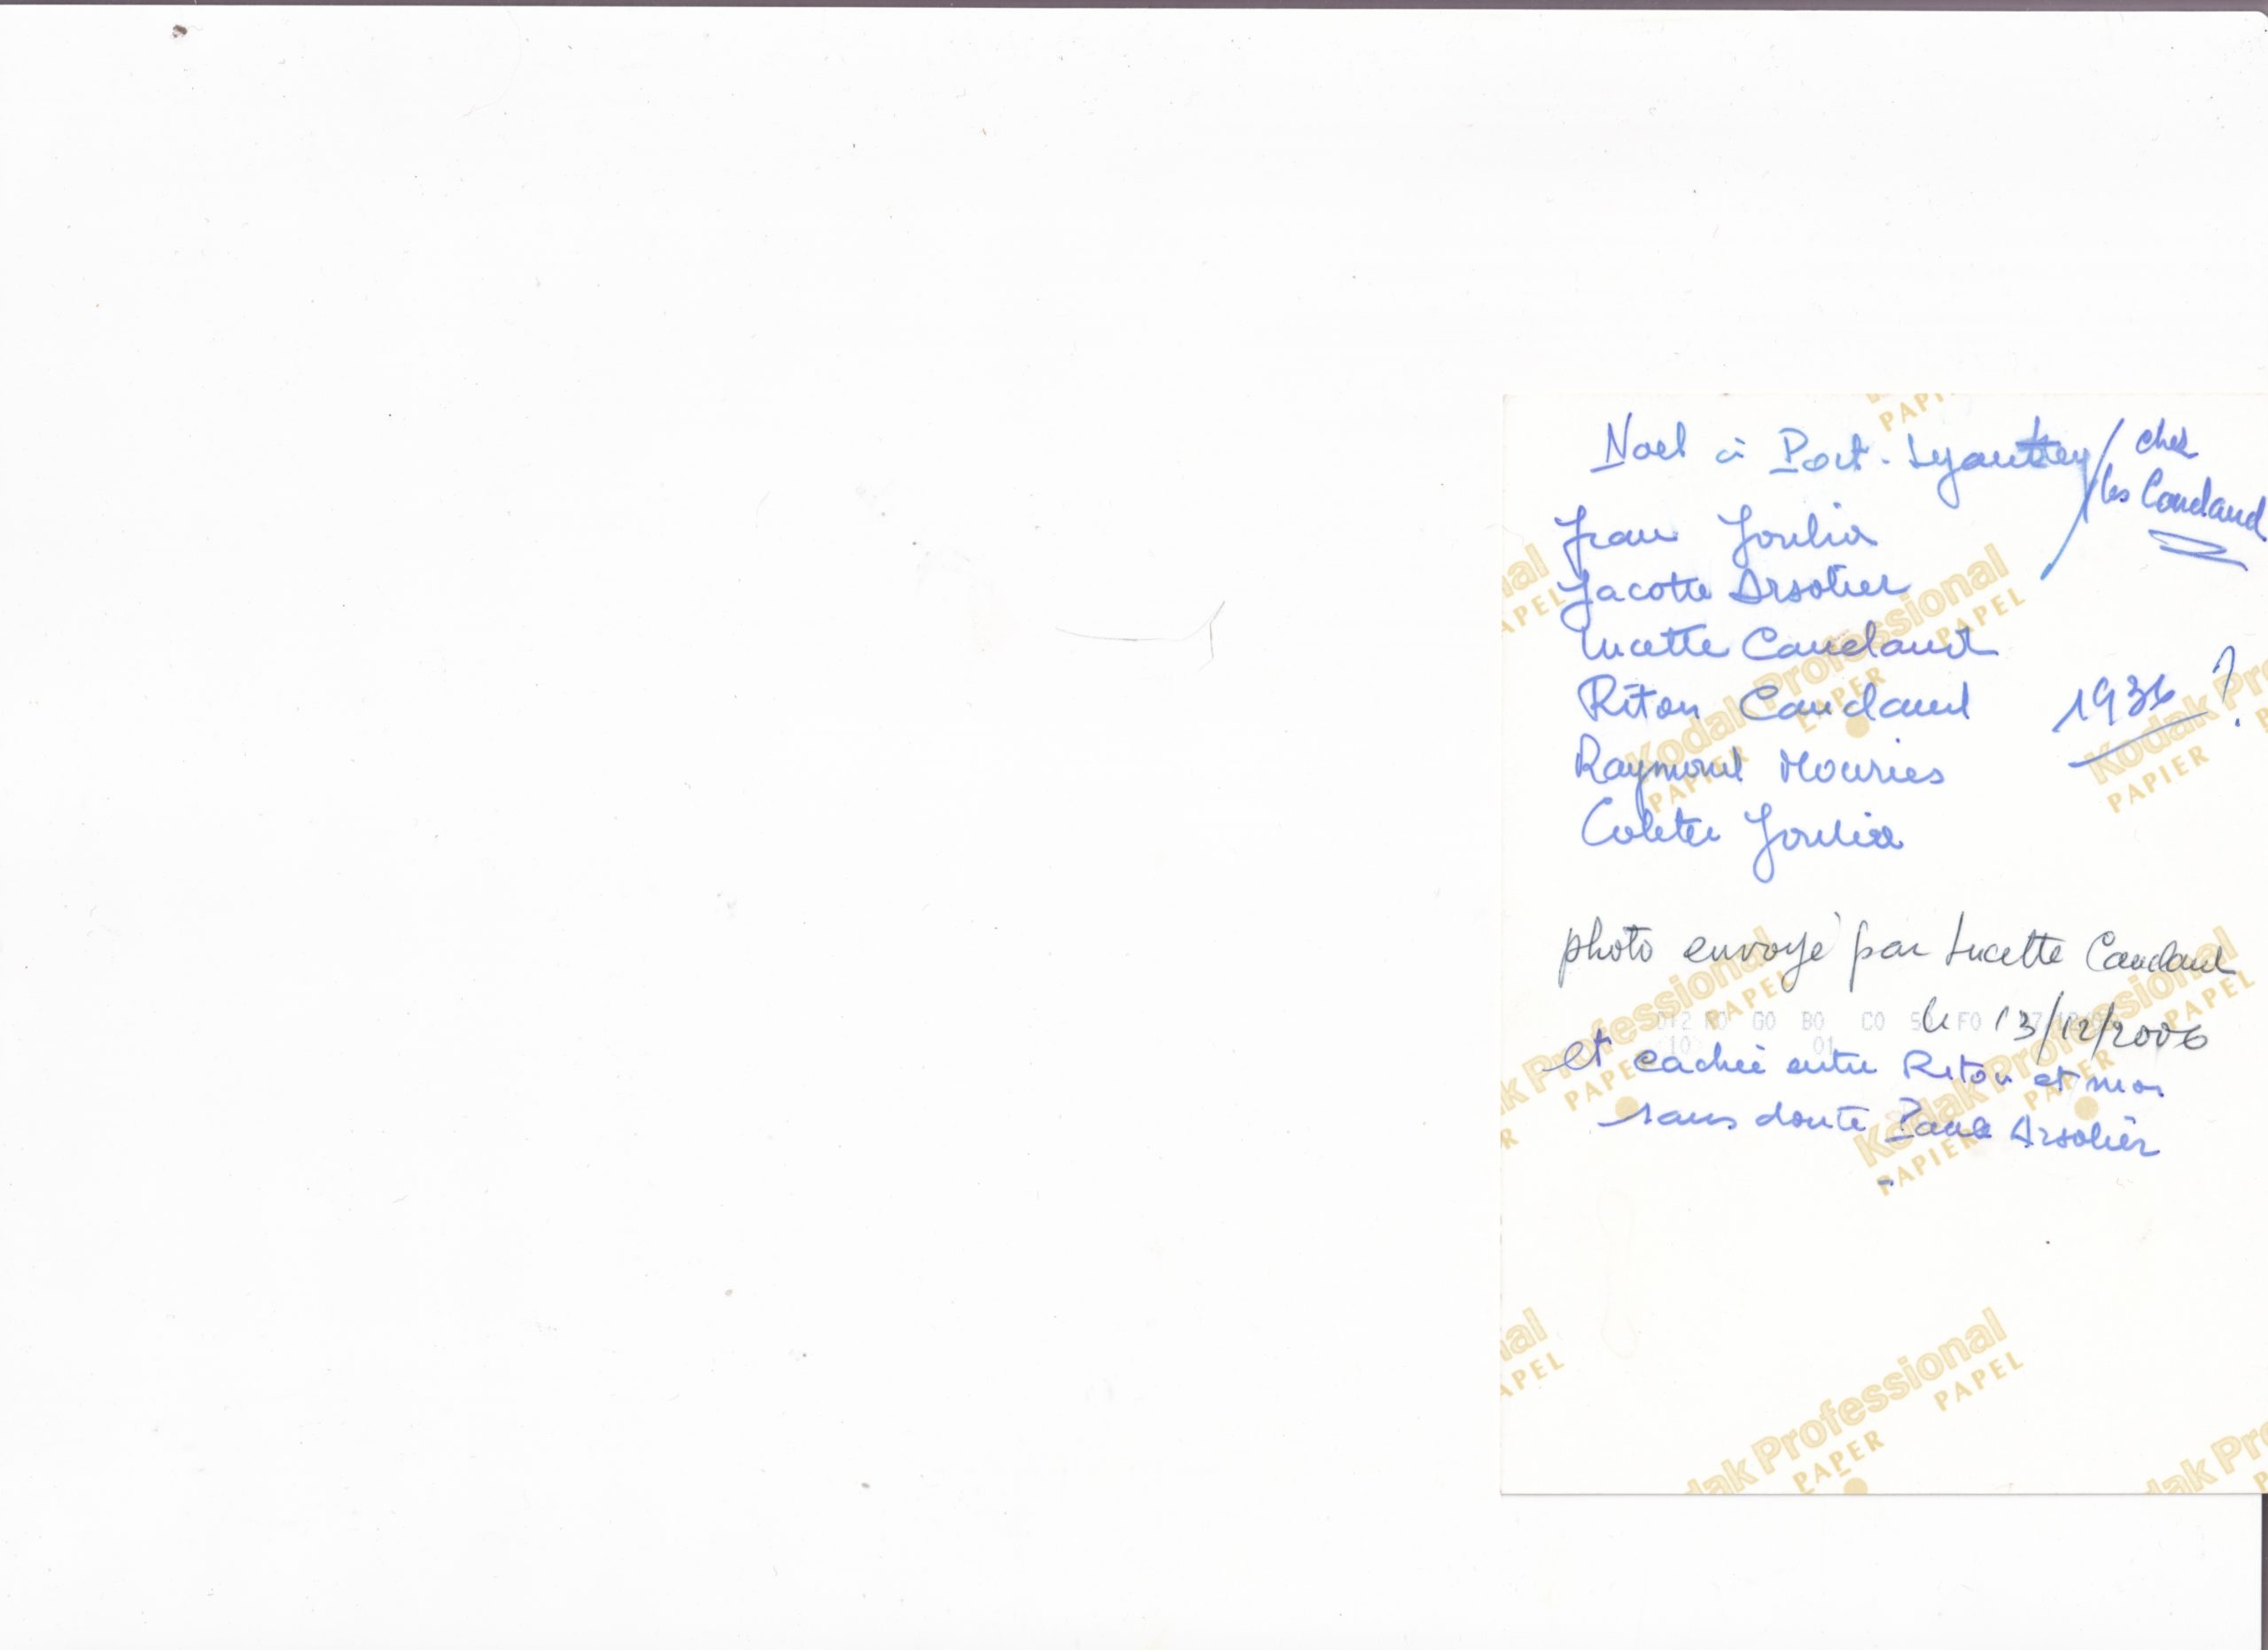 Noel à Port-Lyautey / chez
les Caudaud
Jean Joulia
Jacotte Arsolier
Lucette Caudaud
Riton Caudaud
1936 ?
Raymond Mouries
Colette Joulia
photo envoyé par Lucette Caudaud
le 13/12/2006
et cachée entre Riton et moi
sans doute Paule Arsolier
Kodak Professional
PAPIER PAPER PAPEL